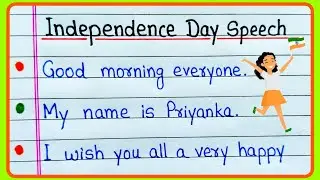 Independence Day Speech
Good morning everyone.
My name is Priyanka.
I wish you all a very happy